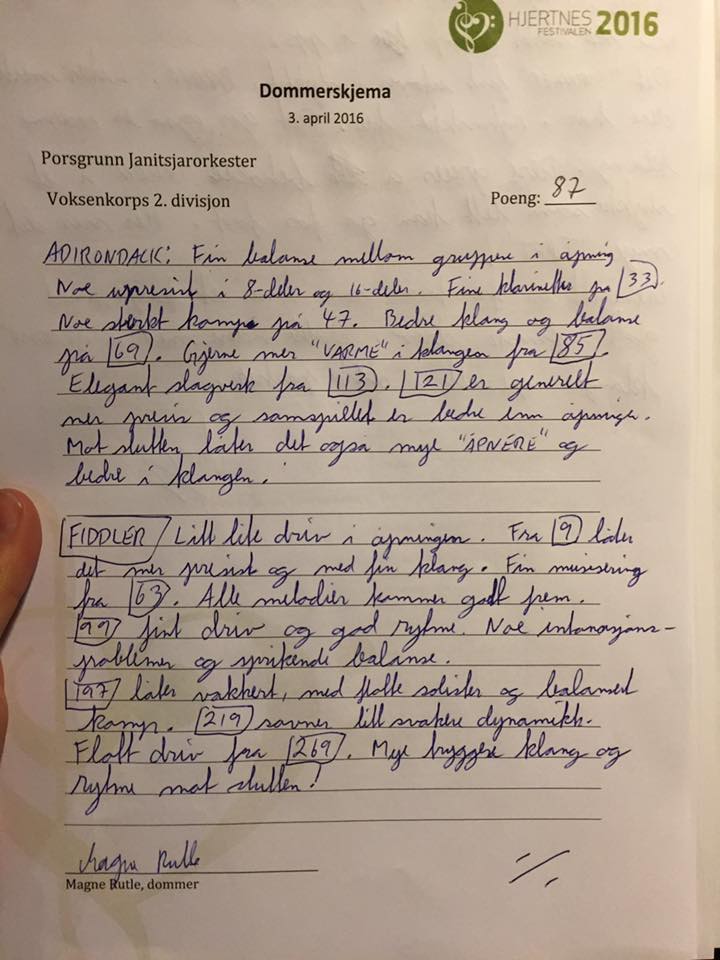 HJERTNES
FESTIVALEN 2016
Dommerskjema
3. april 2016
Porsgrunn Janitsjarorkester
Voksenkorps 2. divisjon Poeng: 87
ADIRONDACK: Fin balanse mellom gruppene i åpning
Noe upresist i 8-deler og 16-deler. Fine klarinetter fra 33.
Noe sterkt komp på 47. Bedre klang og balanse
på 69. Gjerne mer "VARME" i klangen fra 85.
Elegant slagverk fra 113. 121 er generelt
mer presis og samspillet er bedre enn åpningen.
Mot slutten låter det også mye "ÅPNERE" og
bedre i klangen.
FIDDLER / Litt lite driv i åpningen. Fra 9 låter
det mer presist og med fin klang. Fin musisering
fra 63. Alle melodier kommer godt frem.
99 fint driv og god rytme. Noe intonasjons-
problemer og sprikende balanse.
197 låter vakkert, med flotte solister og balansert
komp. 219 savner litt svakere dynamikk.
Flott driv fra 269. Mye tryggere klang og
rytme mot slutten!
Magne Rutle
Magne Rutle, dommer